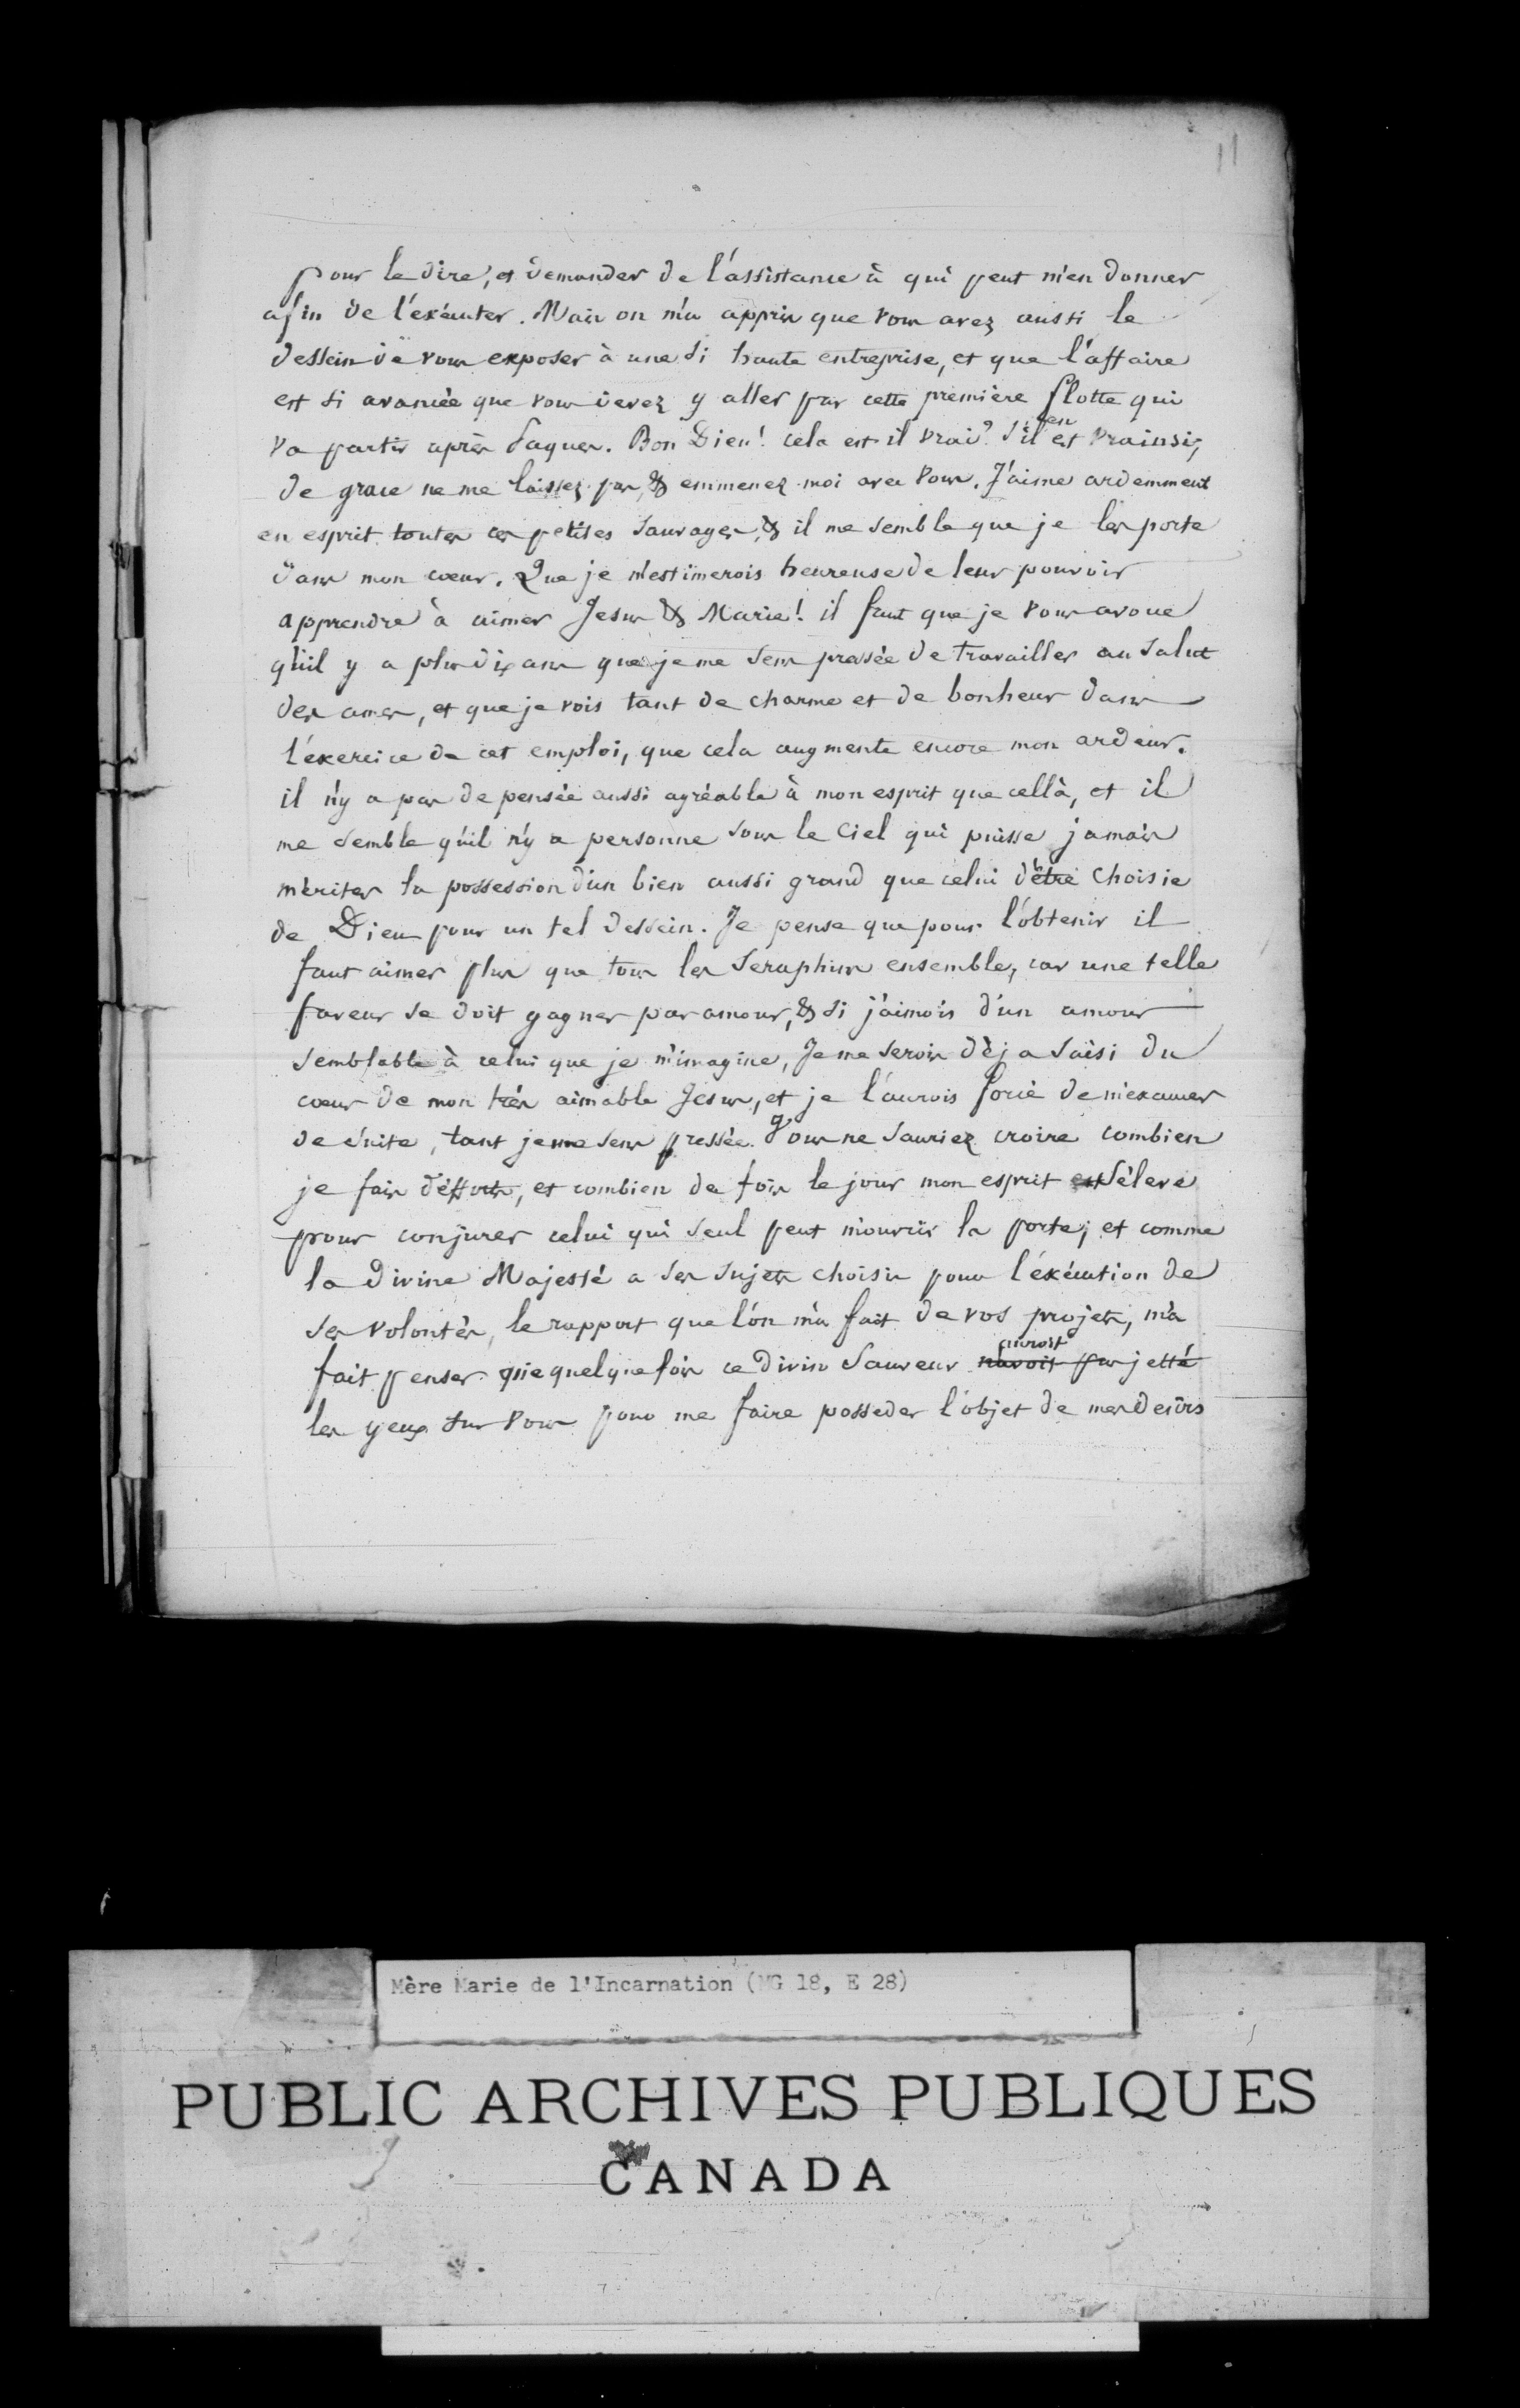 11
pour le dire, et demander de l'assistance à qui peut m'en donner
afin de l'éxécuter. Mais on m'a appris que vous avez aussi le
dessein de vous exposer à une si haute entreprise, et que l'affaire
est si avancée que vous devez y aller par cette première flotte qui
va partir après Paques. Bon Dieu! cela est-il vrai? s'il en est vrainsi,
de grace ne me laissez pas, & emmenez-moi avec vous. J'aime ardemment
en esprit toutes ces petites sauvages, & il me semble que je les porte
dans mon cœur. Que je m'estimerois heureuse de leur pouvoir
apprendre à aimer Jesus & Marie! il faut que je vous avoue
qu'il y a plus dix ans que je me sens pressée de travailler au salut
des ames, et que je vois tant de charme et de bonheur dans
l'éxercice de cet emploi, que cela augmente encore mon ardeur.
il n'y a pas de pensée aussi agréable à mon esprit que cellà, et il
me semble qu'il n'y a personne sous le Ciel qui puisse jamais
mériter la possession d'un bien aussi grand que celui d'être choisie
de Dieu pour un tel dessein. Je pense que pour l'obtenir il
faut aimer plus que tous les Seraphins ensemble, car une telle
faveur se doit gagner par amour, & si j'aimois d'un amour
semblable à celui que je m'imagine, Je me serois dèja saisi du
cœur de mon très aimable Jesus, et je l'aurois forcé de m'exaucer
de suite, tant je me sens pressée. Vous ne sauriez croire combien
je fais d'éfforts, et combien de fois le jour mon esprit est s'éleve
pour conjurer celui qui seul peut m'ouvrir la porte; et comme
la Divine Majesté a ses sujets choisis pour l'éxécution de
ses volontés, le rapport que l'on m'a fait de vos projets, m'a
fait penser que quelquefois ce divin Sauveur n'avoit pas auroit jetté
les yeux sur vous pour me faire posseder l'objet de mes desirs
Mère Marie de l'Incarnation (MG 18, E 28)
PUBLIC ARCHIVES PUBLIQUES
CANADA